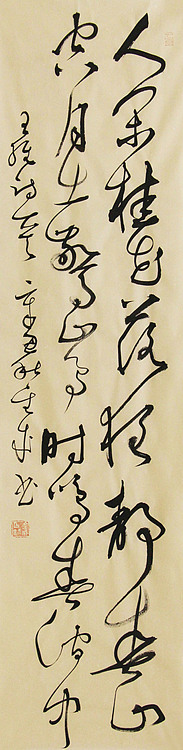 人闲桂花落夜静春山
空月出惊山鸟时鸣春涧中
王维诗 辛丑秋 书